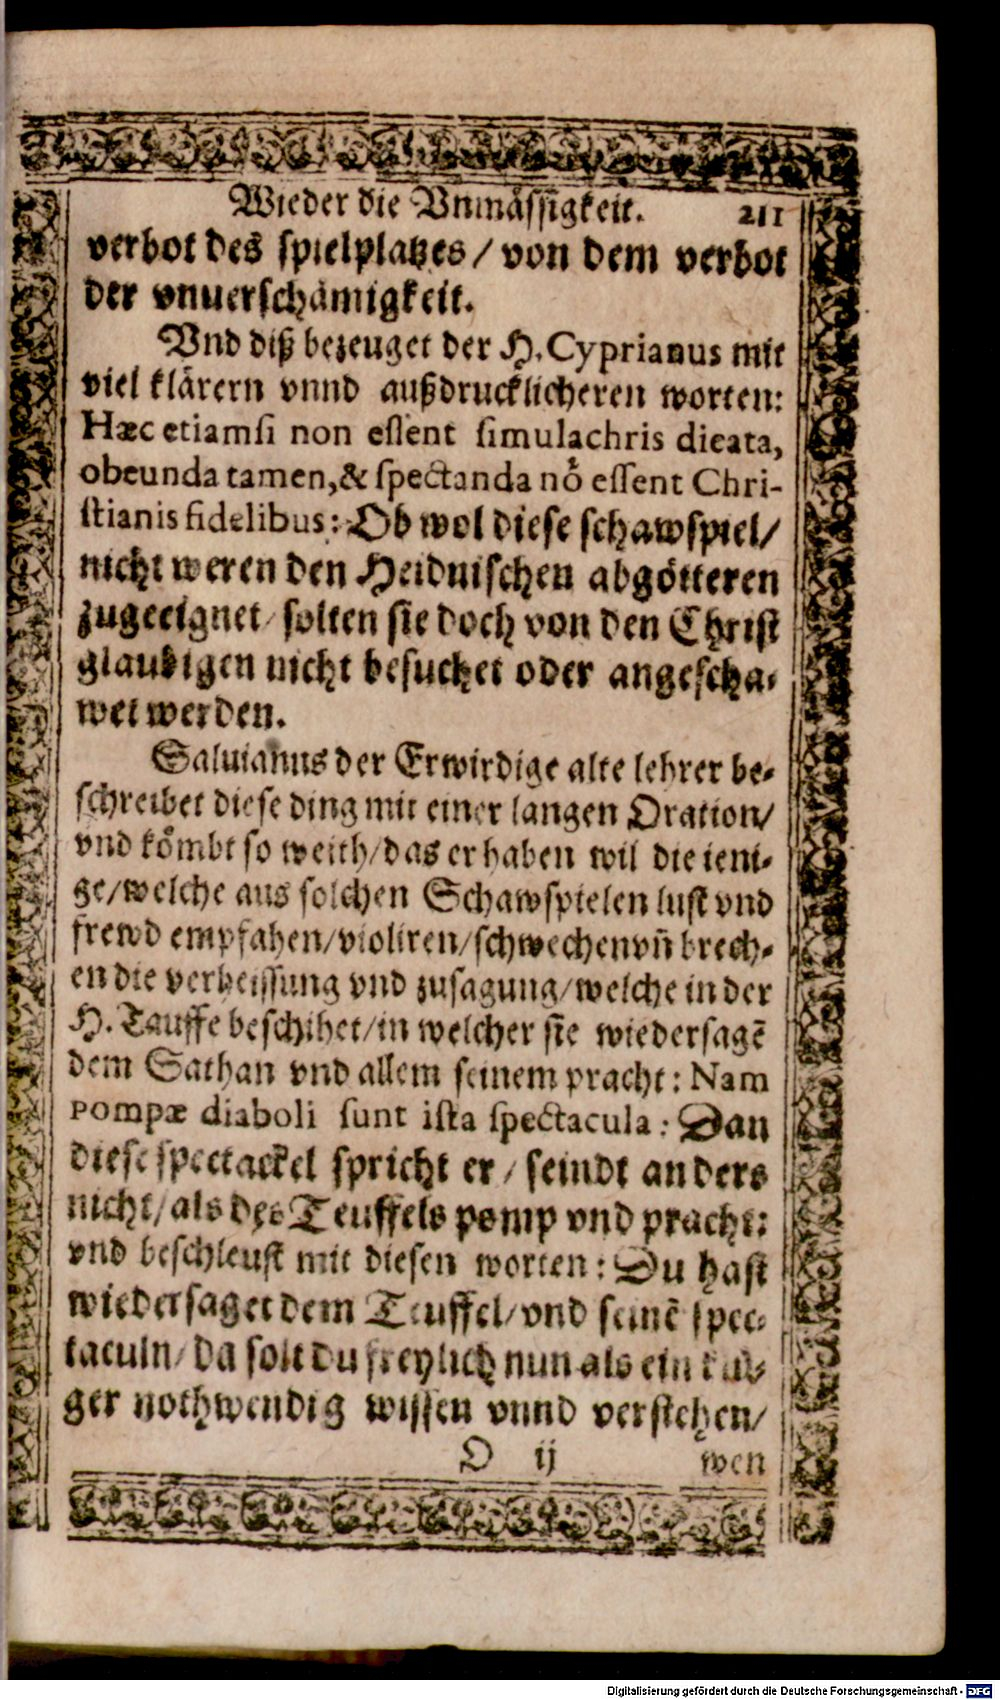 Wieder die Vnmässigkeit. 211
verbot des spielplatzes / von dem verbot
der vnuerschämigkeit.
Vnd diß bezeuget der H. Cyprianus mit
viel klärern vnnd außdrucklicheren worten:
Hæc etiamsi non essent simulachris dicata,
obeunda tamen, & spectanda nõ essent Chri-
stianis fidelibus: Ob wol diese schawspiel/
nicht weren den Heidnischen abgötteren
zugeeignet / solten sie doch von den Christ
glaubigen nicht besuchet oder angescha-
wet werden.
Saluianus der Erwirdige alte lehrer be-
schreibet diese ding mit einer langen Oration/
vnd kömbt so weith / das er haben wil die ieni-
ge / welche aus solchen Schawspielen lust vnd
frewd empfahen / violiren / schwechen vñ brech-
en die verheissung vnd zusagung / welche in der
H. Tauffe beschihet / in welcher sie wiedersagẽ
dem Sathan vnd allem seinem pracht: Nam
pompæ diaboli sunt ista spectacula: Dan
diese spectackel spricht er / seindt anders
nicht / als des Teuffels pomp vnd pracht:
vnd beschleust mit diesen worten: Du hast
wiedersaget dem Teuffel / vnd seinẽ spec-
taculn / da solt du freylich nun als ein klü-
ger nothwendig wissen vnnd verstehen/
O ij wen
Digitalisierung gefördert durch die Deutsche Forschungsgemeinschaft - DFG